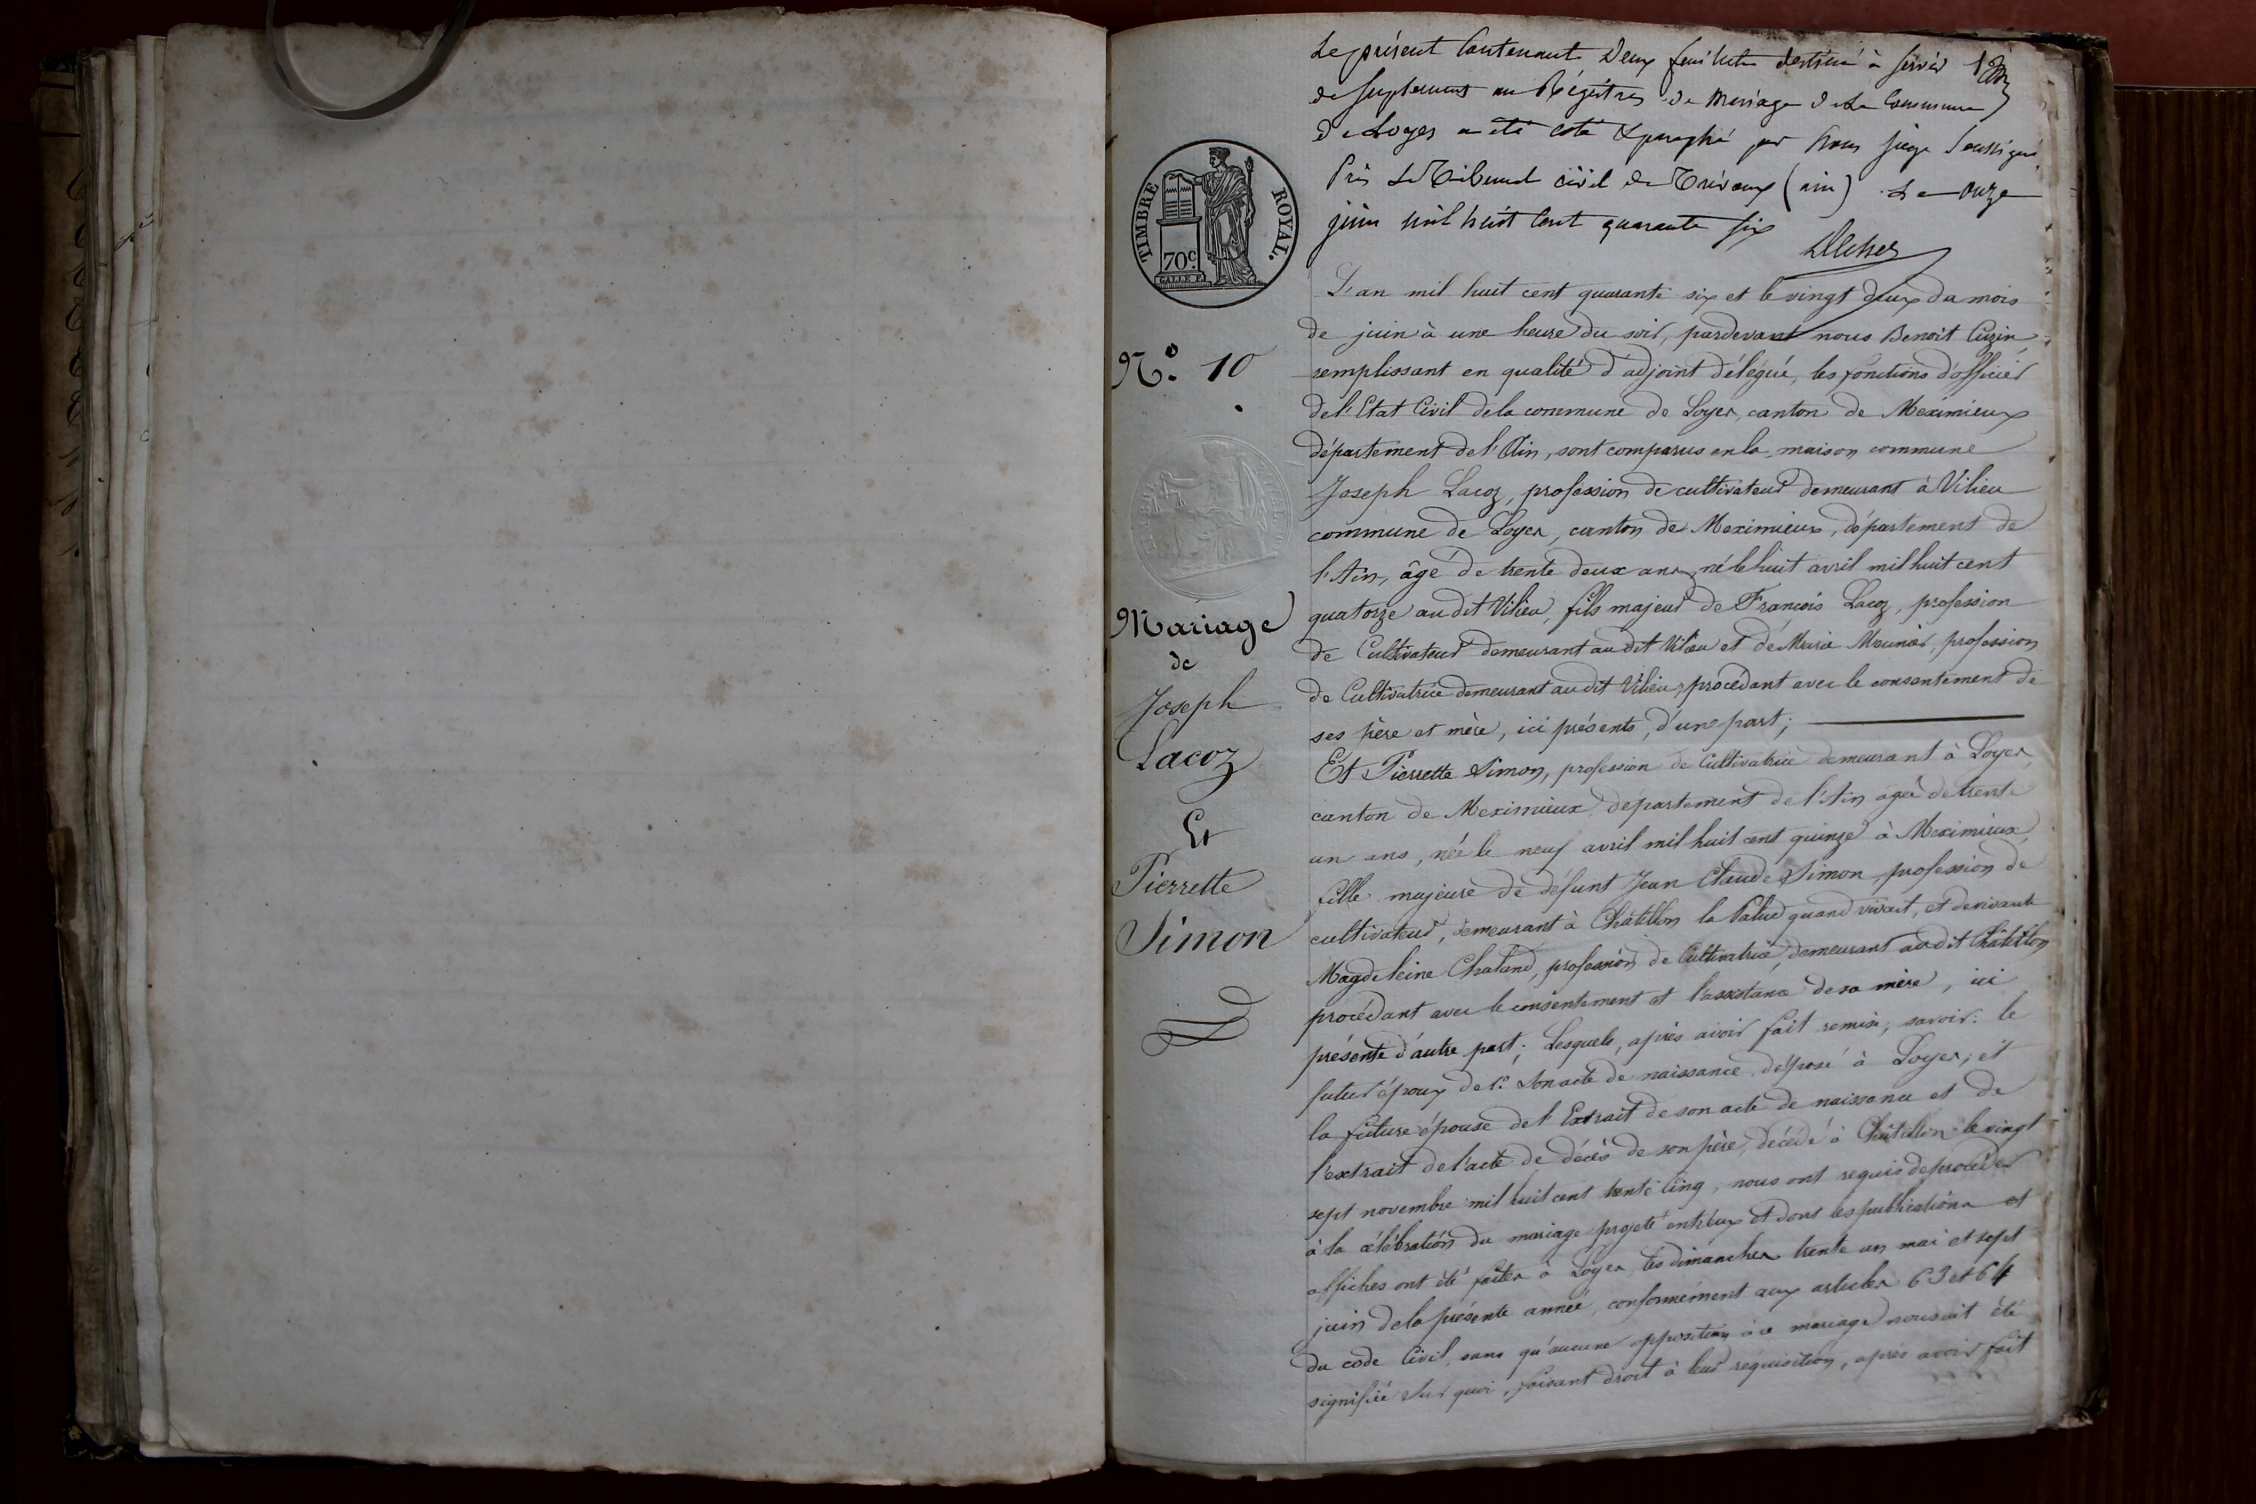 Le présent Contenant Deux feuillets destiné à servir 1er
de suplement au Régistres de Mariage de La Commune
de Loyes a été coté & paraphé par Nous juge Soussigné
Près Le Tribunal civil de Trévoux (ain) Le onze
juin mil huit Cent quarante six
TIMBRE ROYAL.
70c.
L'an mil huit cent quarante six et le vingt deux du mois
de juin à une heure du soir, pardevant nous Benoit Cuzin
No. 10
remplissant en qualité d'adjoint délégué, les fonctions d'officier
de l'Etat Civil de la commune de Loyes, canton de Meximieux
département de l'Ain, sont comparus en la maison commune
Joseph Lacoz, profession de cultivateur demeurant à Vilieu
commune de Loyes, canton de Meximieux, département de
l'Ain, âgé de trente deux ans, né le huit avril mil huit cent
quatorze au dit Vilieu, fils majeur de François Lacoz, profession
de Cultivateur demeurant au dit Vilieu et de Marie Mounier, profession
de Cultivatrice demeurant au dit Vilieu, procédant avec le consentement de
ses père et mère, ici présents, d'une part;
Mariage
de
Joseph
Lacoz
Et
Pierrette
Simon
Et Pierrette Simon, profession de Cultivatrice demeurant à Loyes,
canton de Meximieux département de l'Ain agée de trente
un ans, née le neuf avril mil huit cent quinze à Meximieux,
fille majeure de défunt Jean Claude Simon, profession de
cultivateur, demeurant à Châtillon la Palud quand vivait, et de vivante
Magdeleine Chaland, profession de Cultivatrice, demeurant au dit Châtillon
procédant avec le consentement et l'assistance de sa mère, ici
présente d'autre part; Lesquels, après avoir fait remise, savoir: le
futur époux de l'. son acte de naissance déposé à Loyes; et
la future épouse de l'Extrait de son acte de naissance et de
l'extrait de l'acte de décès de son père, décédé à Châtillon le vingt
sept novembre mil huit cent trente cinq, nous ont requis de procéder
à la célébration du mariage projeté entr'eux et dont les publications et
affiches ont été faites à Loyes, les dimanches trente un mai et sept
juin de la présente année, conformément aux articles 63 et 64
du code Civil, sans qu'aucune opposition à ce mariage nous ait été
signifiée Sur quoi, faisant droit à leur réquisition, après avoir fait